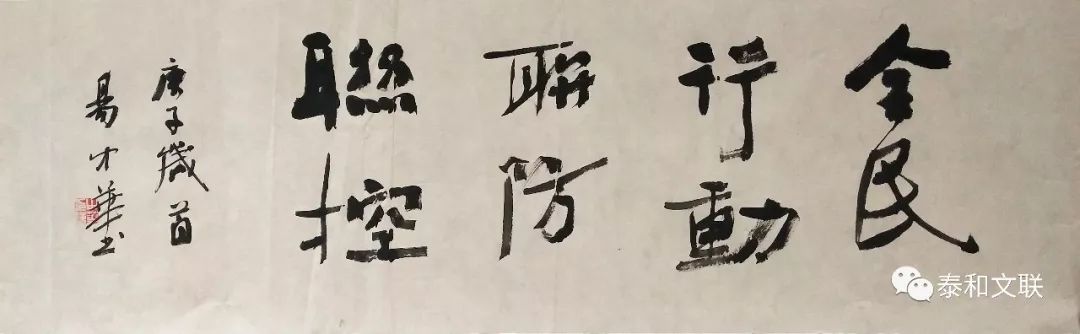 全民
行動
聯防
聯控
庚子歲首
易才華书
泰和文联